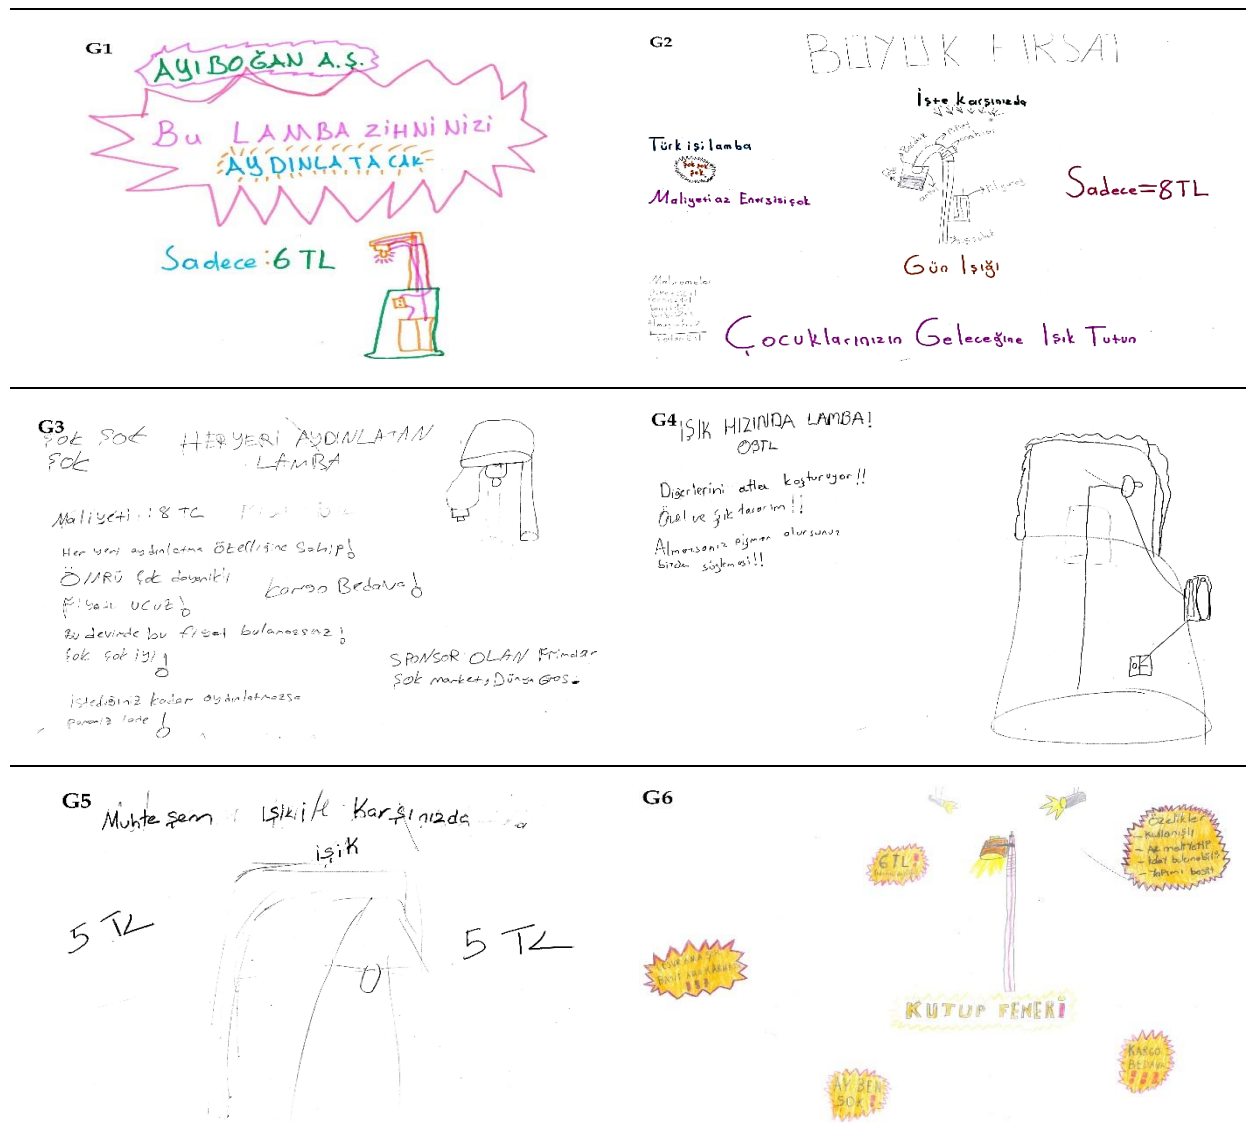 G1
AYIBOĞAN A.Ş.
Bu LAMBA ZİHNİNİZİ
AYDINLATACAK
Sadece:6 TL
G2
BÜYÜK FIRSAT
İşte Karşınızda
Türk işi lamba
Şok şok
şok
Maliyeti az Enerjisi çok
Sadece=8TL
Gün Işığı
Malzemeler
Çocuklarınızın Geleceğine Işık Tutun
G3
ŞOK ŞOK
ŞOK
HERYERİ AYDINLATAN
LAMBA
Maliyeti: 8 TL
Her yeri aydınlatma özelliğine Sahip!
ÖMRÜ Çok dayanıklı
Kargo Bedava!
Fiyatı UCUZ!
Bu devirde bu fiyat bulamassınız!
Çok çok iyi!
SPONSOR OLAN Frimalar
Şok market, Dünya Gros.
istediğiniz kadar aydınlatmazsa
paranız iade!
G4
IŞIK HIZINDA LAMBA!
Diğerlerini atla koşturuyor!!
Özel ve şık tasarım!!
Almassanız pişman olursunuz
bizden söylemesi!!
G5
Muhteşem ışık ile Karşınızda
ışık
5 TL
5 TL
G6
6TL!
Özelikler
- Kullanışlı
- Az maliyetli
- Yapımı basit
KUTUP FENERİ
KARGO
BEDAVA
!!!
AY BEN
ŞOK!